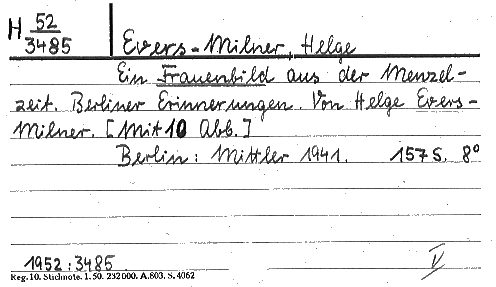 H 52/3485
Evers-Milner, Helge
Ein Frauenbild aus der Menzel-
zeit. Berliner Erinnerungen. Von Helge Evers-
Milner. [Mit 10 Abb.]
Berlin: Mittler 1941. 157 S. 8°
1952:3485 V
Reg. 10. Stichnote. 1. 50. 232000. A.803. S. 4062